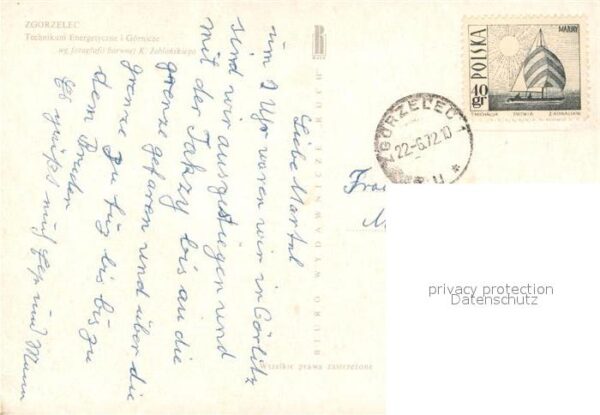 ZGORZELEC
Technikum Energetyczne i Górnicze
wg fotografii barwnej K. Jabłońskiego
Liebe Martel
um 2 Uhr waren wir in Görlitz
sind wir ausgestiegen und
mit der Taxzy bis an die
grenze gefaren und über die
Granze zu fus bis bis zu
dem Bruder
Es grüßt mich und Mann
BIURO WYDAWNICZE RUCH
Wszelkie prawa zastrzeżone
POLSKA
40 gr
MAMRY
ZGORZELEC 1
22-6.72.10
Frau
M
privacy protection
Datenschutz